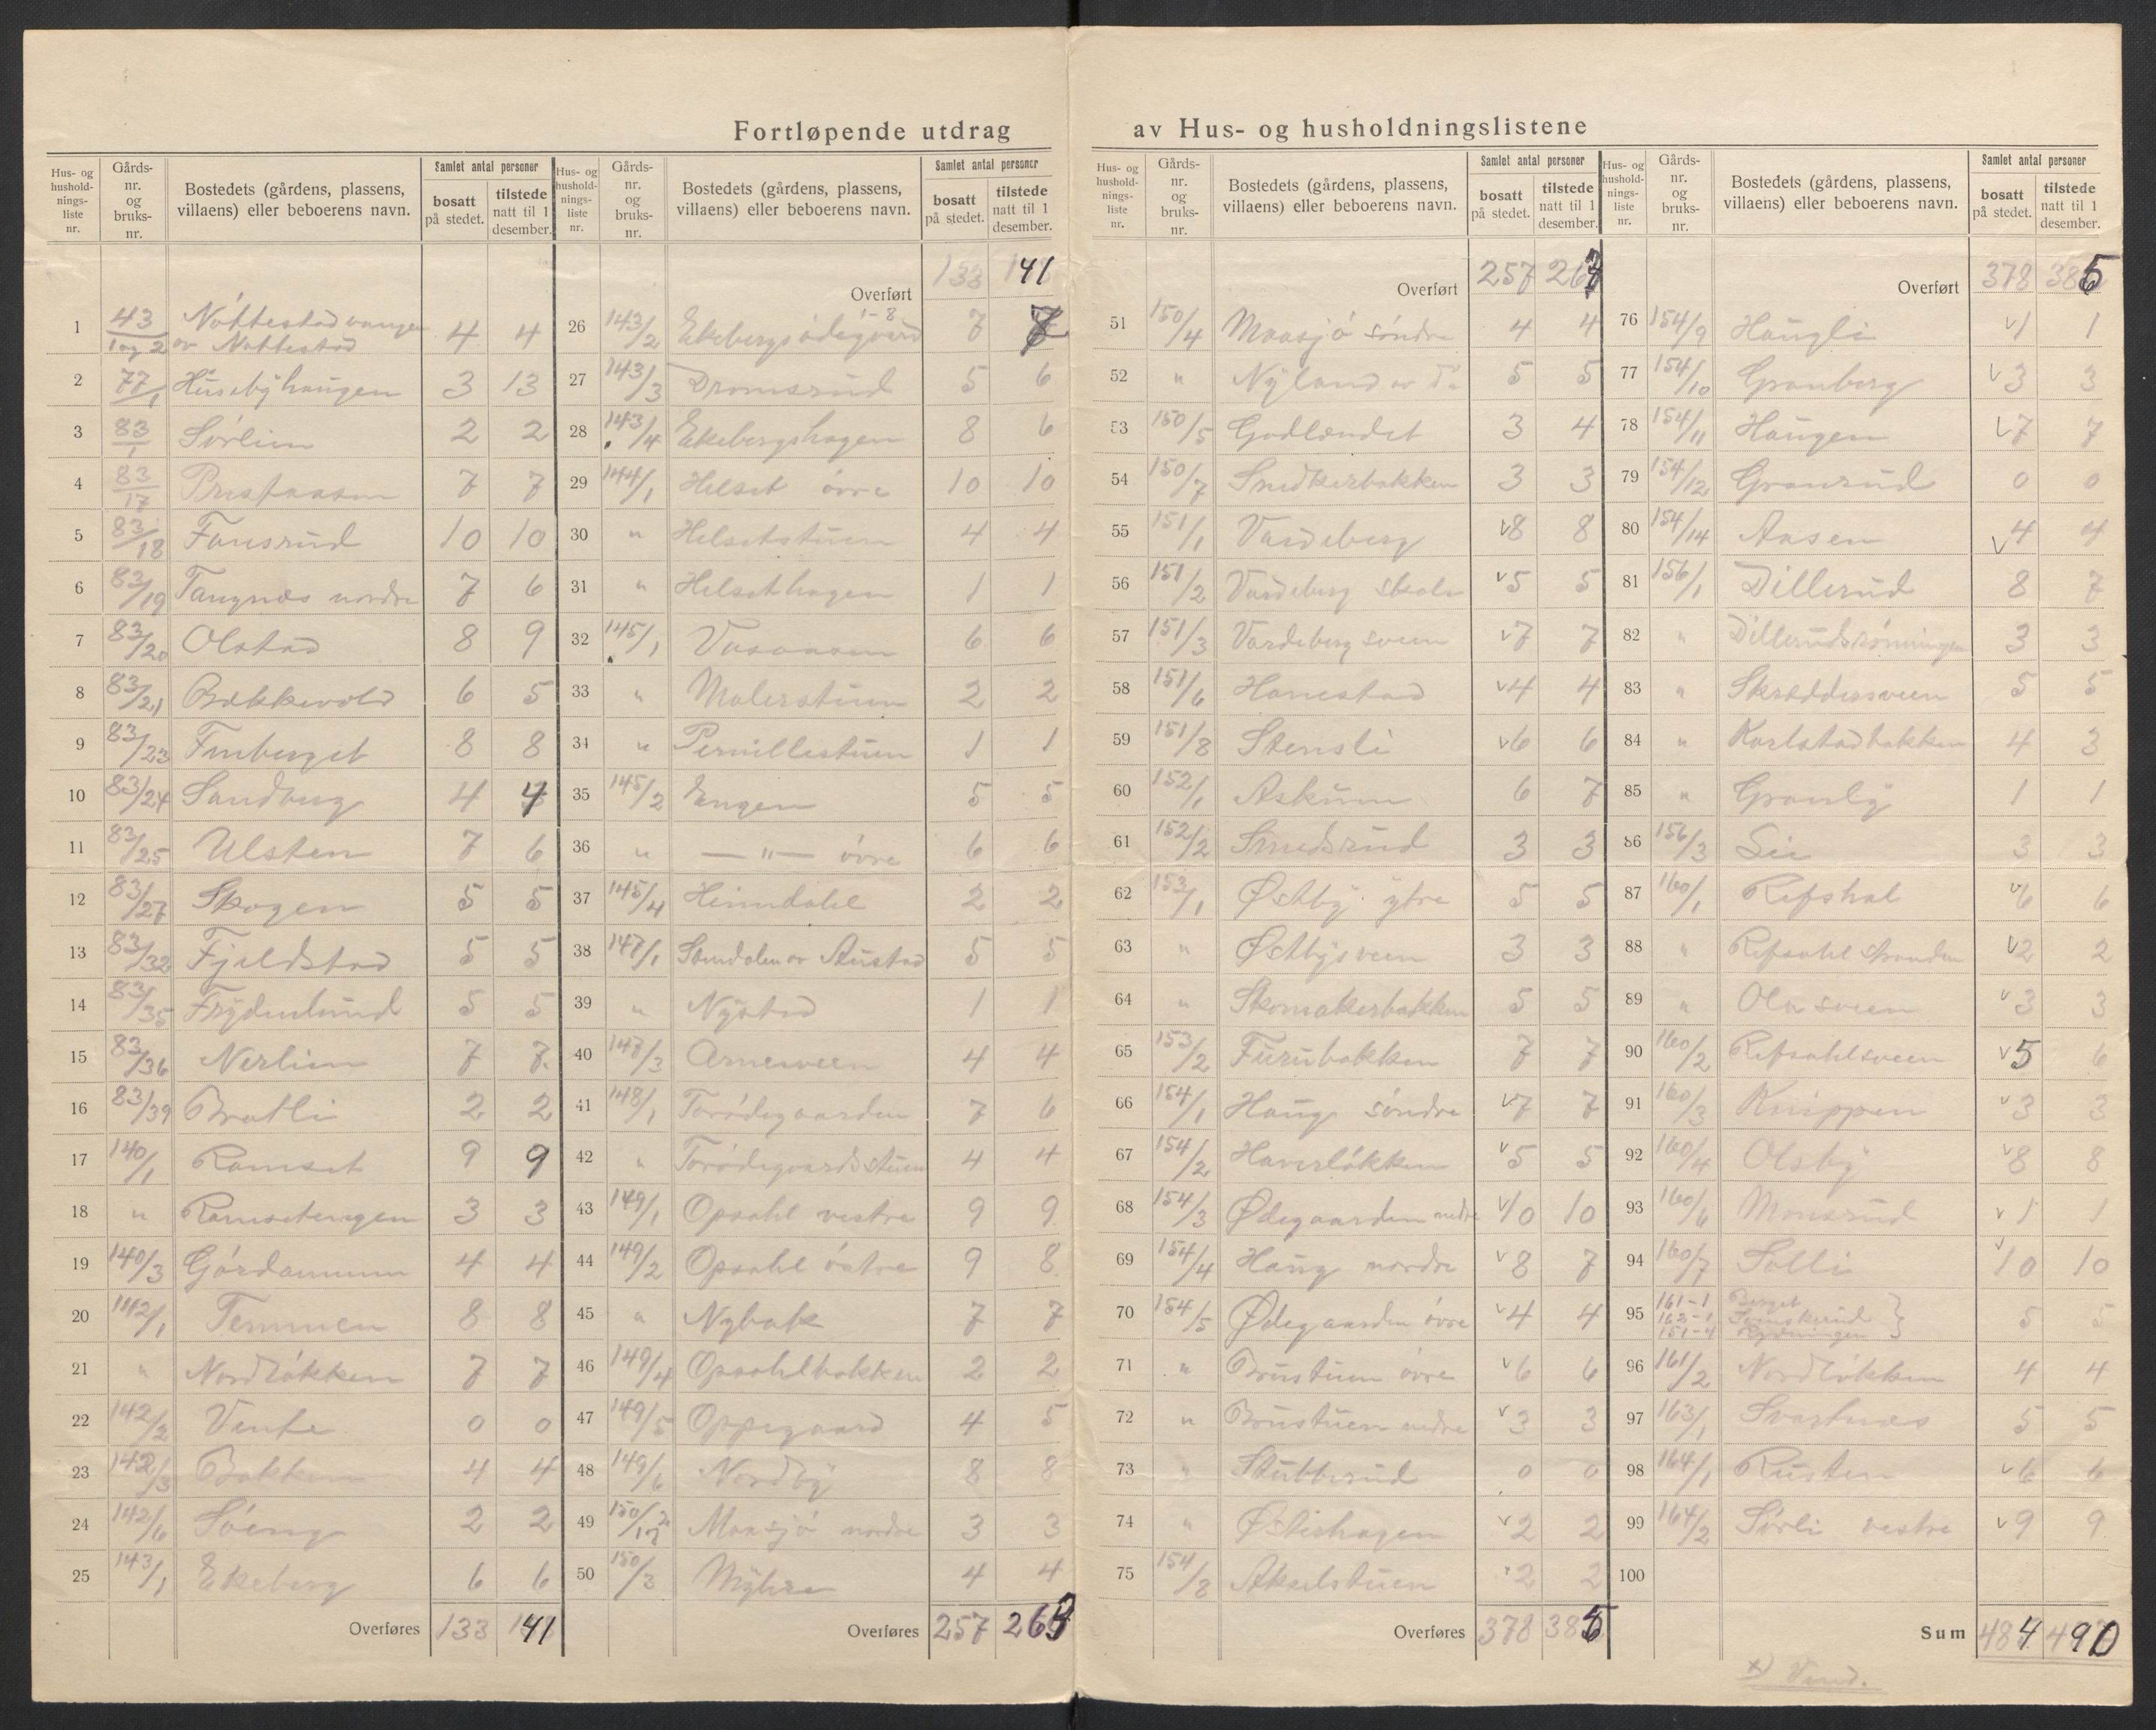 Fortløpende utdrag av Hus- og husholdningslistene
Hus- og husholdnings-liste nr. | Gårds-nr. og bruks-nr. | Bostedets (gårdens, plassens, villaens) eller beboerens navn. | Samlet antal personer | bosatt på stedet. | tilstede natt til 1 desember.
1 43/1og2 Nøttestadvangen av Nøttestad 4 4
2 77/1 Husebyhaugen 3 13
3 83/1 Sørlien 2 2
4 83/17 7 7
5 83/18 Fonsrud 10 10
6 83/19 Tangnæs nordre 7 6
7 83/20 Olstad 8 9
8 83/21 Bækkevold 6 5
9 83/23 Furuberget 8 8
10 83/24 Sandberg 4 4
11 83/25 Ulsten 7 6
12 83/27 Skogen 5 5
13 83/32 Fjeldstad 5 5
14 83/35 Frydenlund 5 5
15 83/36 Nerlien 7 7
16 83/39 Bratli 2 2
17 140/1 Ramset 9 9
18 " Ramsetengen 3 3
19 140/3 Gjørdammen 4 4
20 142/1 Temmen 8 8
21 " Nordløkken 7 7
22 142/2 0 0
23 142/3 Bakken 4 4
24 142/6 Søeng 2 2
25 143/1 Ekeberg 6 6
Overføres 133 141
Hus- og husholdnings-liste nr. | Gårds-nr. og bruks-nr. | Bostedets (gårdens, plassens, villaens) eller beboerens navn. | Samlet antal personer | bosatt på stedet. | tilstede natt til 1 desember.
Overført 133 141
26 143/2 Ekebergsødegaard 7
27 143/3 Dromsrud 5 6
28 143/4 Ekebergshagen 8 6
29 144/1 Helset øvre 10 10
30 " Helsetstuen 4 4
31 " Helsethagen 1 1
32 145/1 Vasaasen 6 6
33 " Malerstuen 2 2
34 " Pernillestuen 1 1
35 145/2 Engen 5 5
36 " — " — øvre 6 6
37 145/4 Heimdahl 2 2
38 147/1 Sæmdalen av Austad 5 5
39 " Nystad 1 1
40 147/3 Arnesveen 4 4
41 148/1 Torødegaarden 7 6
42 " Torødegaardsstuen 4 4
43 149/1 Opsahl vestre 9 9
44 149/2 Opsahl østre 9 8
45 " Nybak 7 7
46 149/4 Opsahlbakken 2 2
47 149/5 Oppegaard 4 5
48 149/6 Nordby 8 8
49 Maasjø nordre 3 3
50 150/3 Myhre 4 4
Overføres 257 263
Hus- og husholdnings-liste nr. | Gårds-nr. og bruks-nr. | Bostedets (gårdens, plassens, villaens) eller beboerens navn. | Samlet antal personer | bosatt på stedet. | tilstede natt til 1 desember.
Overført 257 263
51 150/4 Maasjø søndre 4 4
52 " Nyland av Do 5 5
53 150/5 Godlændet 3 4
54 150/7 Snedkerbakken 3 3
55 151/1 Vardeberg v8 8
56 151/2 Vardeberg skole v5 5
57 151/3 Vardebergsveen v7 7
58 151/6 Hanestad v4 4
59 151/8 Stensli v6 6
60 152/1 Askum 6 7
61 152/2 Smedsrud 3 3
62 153/1 Østby ytre 5 5
63 " Østbysveen 3 3
64 " Skomakerbakken 5 5
65 153/2 Furubakken 7 7
66 154/1 Haug søndre v7 7
67 154/2 Haverløkken v5 5
68 154/3 Ødegaarden nedre v10 10
69 154/4 Haug nordre v8 7
70 154/5 Ødegaarden øvre v4 4
71 " Brustuen øvre v6 6
72 " Brustuen nedre v3 3
73 " Stubberud 0 0
74 " Østishagen v2 2
75 154/8 Akselstuen v2 2
Overføres 378 385
Hus- og husholdnings-liste nr. | Gårds-nr. og bruks-nr. | Bostedets (gårdens, plassens, villaens) eller beboerens navn. | Samlet antal personer | bosatt på stedet. | tilstede natt til 1 desember.
Overført 378 385
76 154/9 Haugli v1 1
77 154/10 Granberg v3 3
78 154/11 Haugen v7 7
79 154/12 Granrud 0 0
80 154/14 Aasen v4 4
81 156/1 Dillerud 8 7
82 " Dillerudsrønningen 3 3
83 " Skræddersveen 5 5
84 " Karlstadbakken 4 3
85 " Granly 1 1
86 156/3 Lie 3 3
87 160/1 Refshal v6 6
88 " Refsahl stranden v2 2
89 " Olasveen v3 3
90 160/2 Refsahlsveen v5 6
91 160/3 Knippen v3 3
92 160/4 Olsby v8 8
93 160/6 Monsrud v1 1
94 160/7 Solli v10 10
95 161-1 Berget
162-1
151-4 Rydningen } 5 5
96 161/2 Nordløkken 4 4
97 163/1 Svartnæs 5 5
98 164/1 Rusten v6 6
99 164/2 Sørli vestre v9 9
100
Sum 484 490
x) Vend.